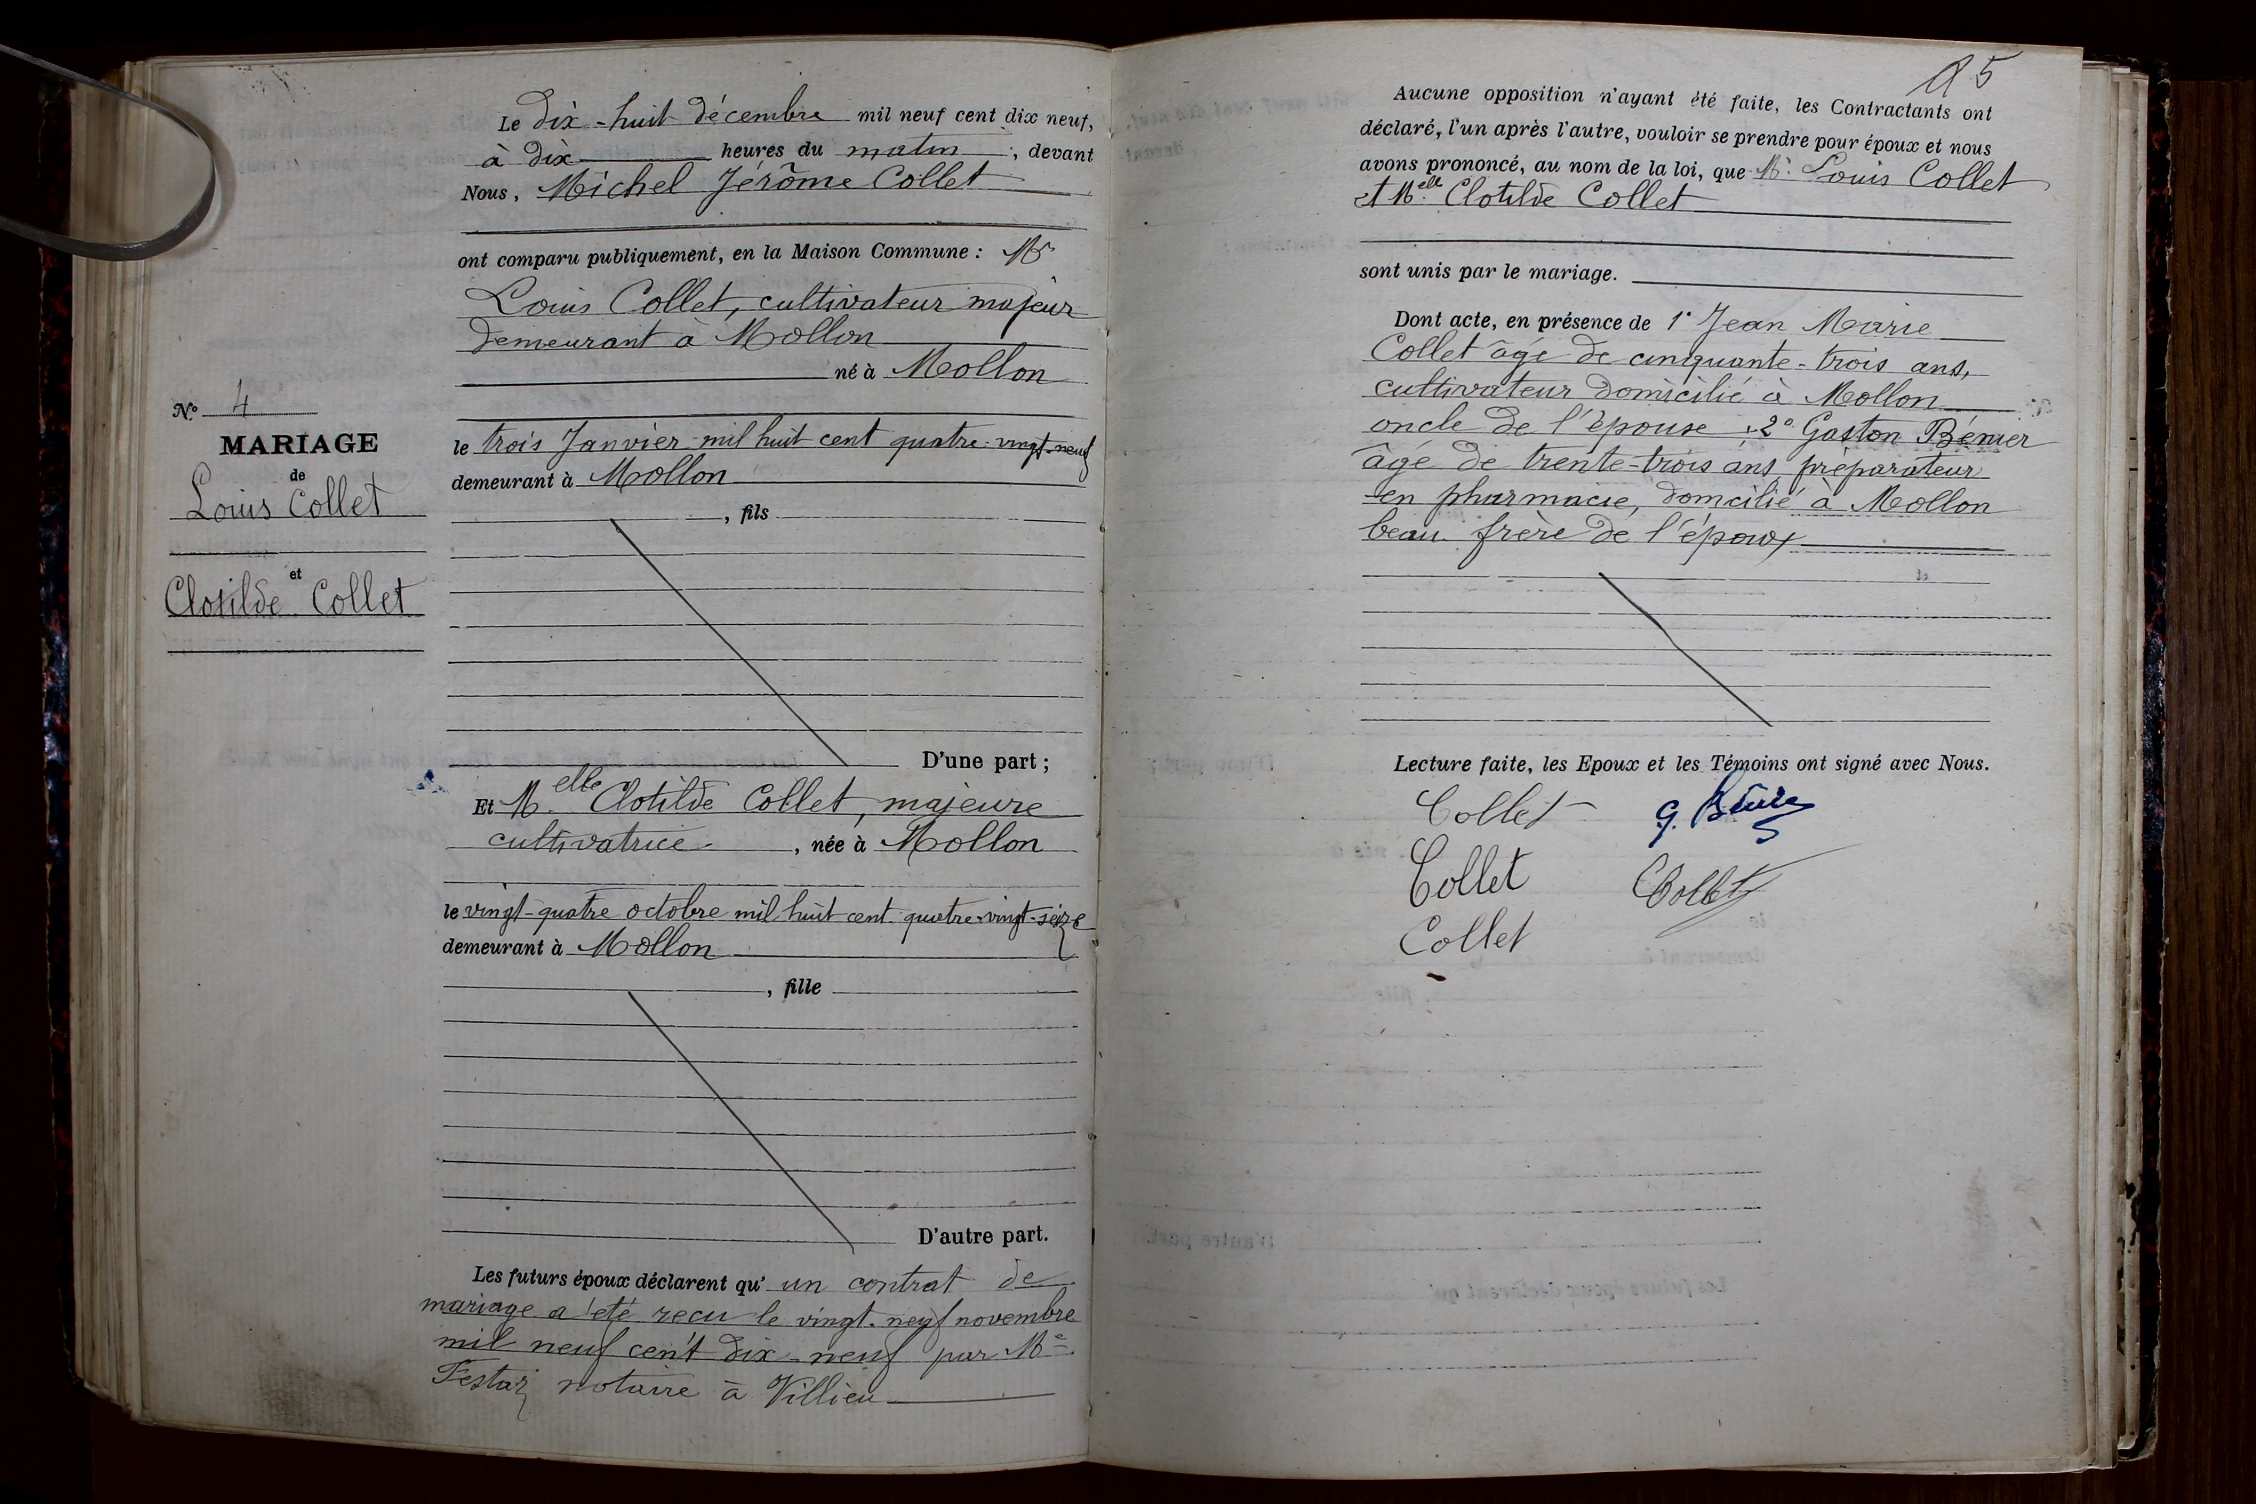 Le dix-huit décembre mil neuf cent dix neuf,
à dix heures du matin, devant
Nous, Michel Jérôme Collet
ont comparu publiquement, en la Maison Commune : Mr
Louis Collet, cultivateur majeur
demeurant à Mollon
né à Mollon
No 4
MARIAGE
de
Louis Collet
et
Clotilde Collet
le trois Janvier mil huit cent quatre-vingt-neuf
demeurant à Mollon
, fils
D'une part ;
Et Melle Clotilde Collet, majeure
cultivatrice , née à Mollon
le vingt-quatre octobre mil huit cent quatre-vingt-seize
demeurant à Mollon
, fille
D'autre part.
Les futurs époux déclarent qu' un contrat de
mariage a été reçu le vingt-neuf novembre
mil neuf cent dix-neuf par Me
Festaz notaire à Villieu
85
Aucune opposition n'ayant été faite, les Contractants ont
déclaré, l'un après l'autre, vouloir se prendre pour époux et nous
avons prononcé, au nom de la loi, que Mr Louis Collet
et Melle Clotilde Collet
sont unis par le mariage.
Dont acte, en présence de 1° Jean Marie
Collet âgé de cinquante-trois ans,
cultivateur domicilié à Mollon
oncle de l'épouse, 2° Gaston Bénier
âgé de trente-trois ans préparateur
en pharmacie, domcilié à Mollon
beau-frère de l'époux
Lecture faite, les Epoux et les Témoins ont signé avec Nous.
Collet G. Bénier
Collet Collet
Collet